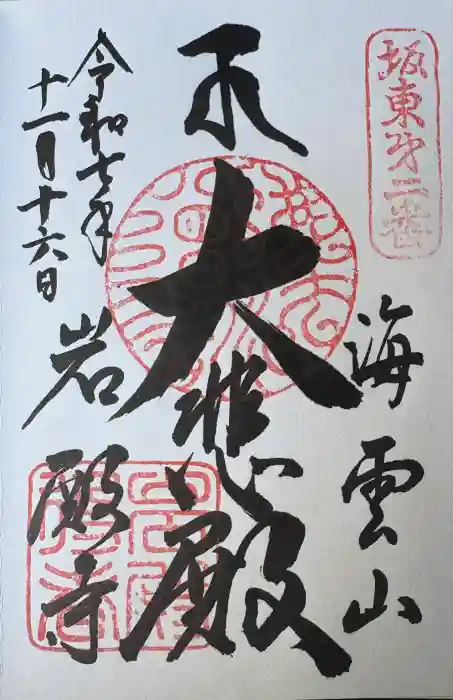 坂東第二番
海雲山
大悲殿
令和七年
十一月十六日
岩殿寺